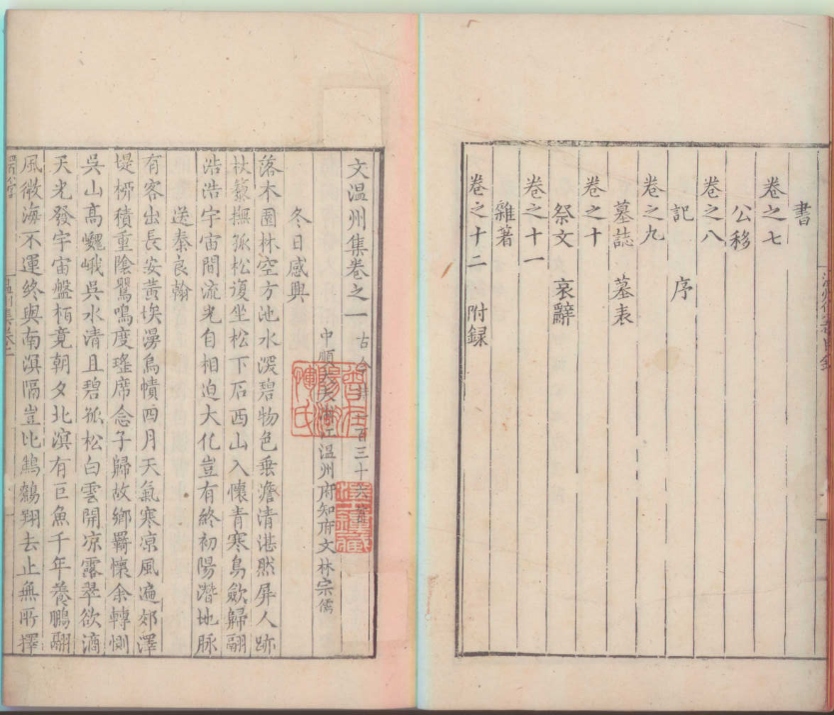 書
卷之七
公移
卷之八
記　序
卷之九
墓誌　墓表
卷之十
祭文　哀辭
卷之十一
雜著
卷之十二　附録
文温州集卷之一
中順大夫浙江温州府知府文林宗儒
冬日感興
落木園林空方池水深碧物色垂澹清湛然屏人跡
扶藜撫孤松復坐松下石西山入懷青寒鳥歛歸翮
浩浩宇宙間流光自相迫大化豈有終初陽潛地脉
送秦良翰
有客出長安黄埃湯烏幘四月天氣寒凉風遍郊澤
堤栁積重陰鶯鳴度瑤席念子歸故鄉羇懷余轉惻
吳山高巍峨吳水清且碧孤松白雲開凉露翠欲滴
天光發宇宙盤桓竟朝夕北溟有巨魚千年養鵬翮
風微海不運終與南溟隔豈比鷦鷯翔去止無所擇